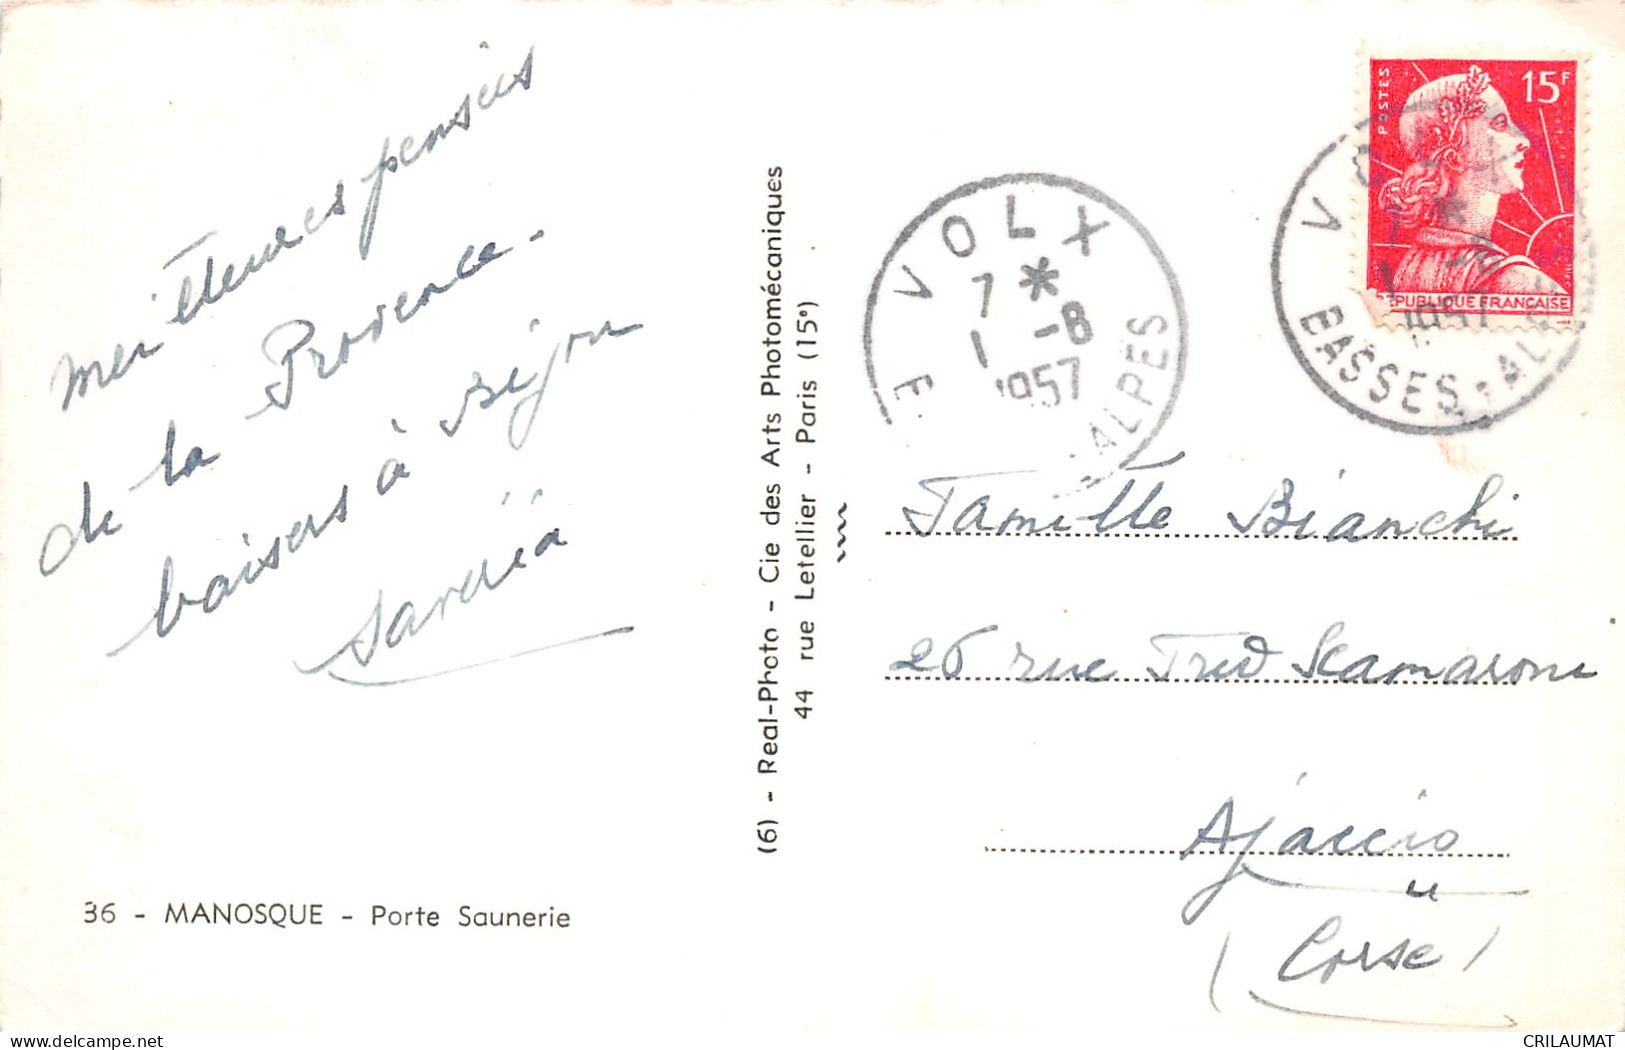 meilleures pensées
de la Provence.
baisers à
36 - MANOSQUE - Porte Saunerie
(6) - Real-Photo - Cie des Arts Photomécaniques
44 rue Letellier - Paris (15e)
VOLX
7 *
1 -8
1957
-ALPES
POSTES
15F
RÉPUBLIQUE FRANÇAISE
VOLX
7 *
1 -8
1957
BASSES-ALPES
Famille Bianchi
26 rue Fred Scamaroni
Ajaccio
(Corse)
CRILAUMAT